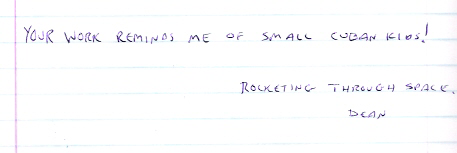 YOUR WORK REMINDS ME OF SMALL CUBAN KIDS!
ROCKETING THROUGH SPACE.
DEAN